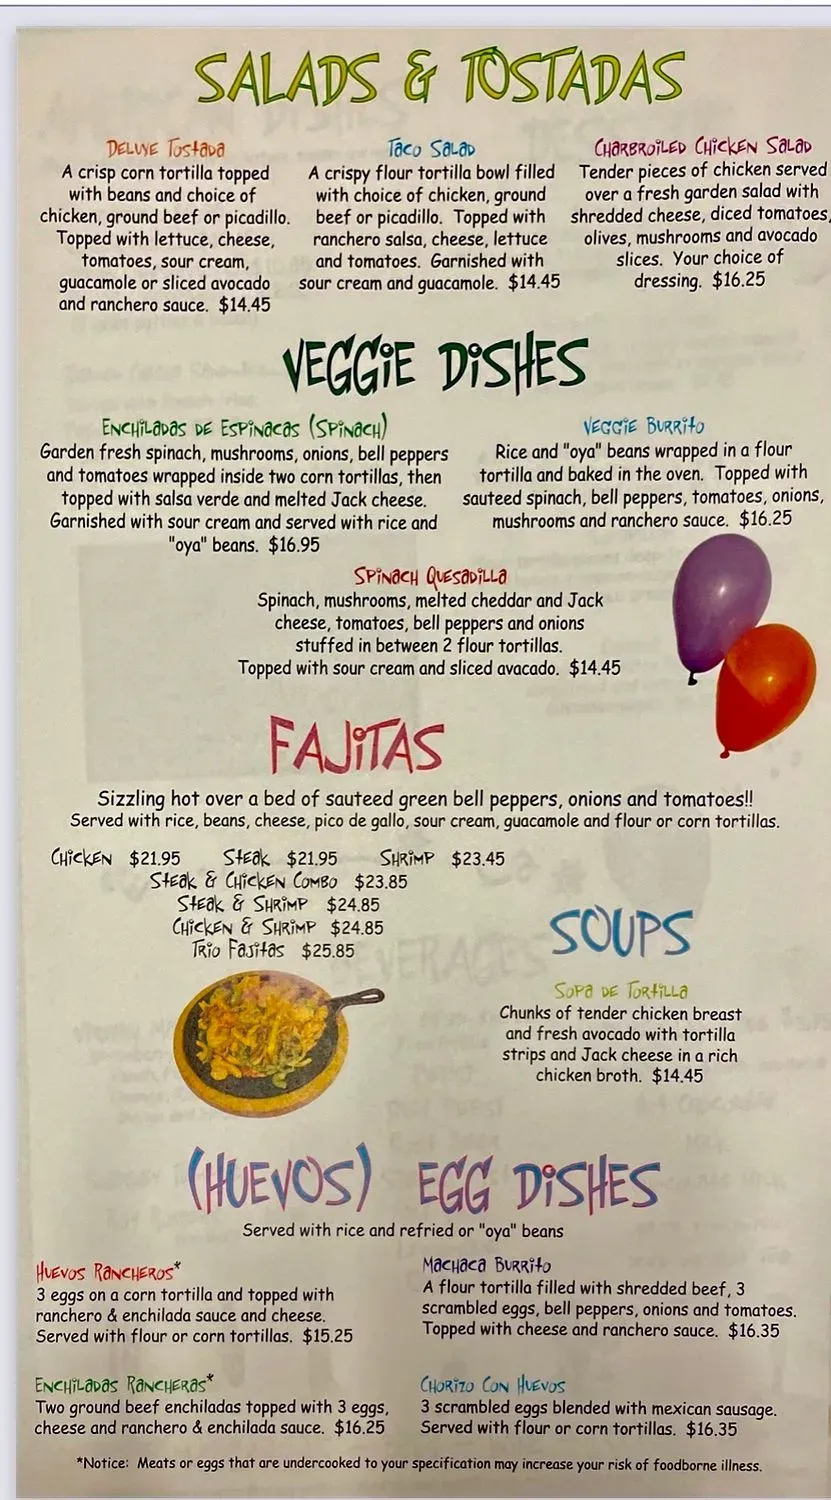 SALADS & TOSTADAS
DELUXE TOSTADA
A crisp corn tortilla topped
with beans and choice of
chicken, ground beef or picadillo.
Topped with lettuce, cheese,
tomatoes, sour cream,
guacamole or sliced avocado
and ranchero sauce. $14.45
TACO SALAD
A crispy flour tortilla bowl filled
with choice of chicken, ground
beef or picadillo. Topped with
ranchero salsa, cheese, lettuce
and tomatoes. Garnished with
sour cream and guacamole. $14.45
CHARBROILED CHICKEN SALAD
Tender pieces of chicken served
over a fresh garden salad with
shredded cheese, diced tomatoes,
olives, mushrooms and avocado
slices. Your choice of
dressing. $16.25
VEGGIE DISHES
ENCHILADAS DE ESPINACAS (SPINACH)
Garden fresh spinach, mushrooms, onions, bell peppers
and tomatoes wrapped inside two corn tortillas, then
topped with salsa verde and melted Jack cheese.
Garnished with sour cream and served with rice and
"oya" beans. $16.95
VEGGIE BURRITO
Rice and "oya" beans wrapped in a flour
tortilla and baked in the oven. Topped with
sauteed spinach, bell peppers, tomatoes, onions,
mushrooms and ranchero sauce. $16.25
SPINACH QUESADILLA
Spinach, mushrooms, melted cheddar and Jack
cheese, tomatoes, bell peppers and onions
stuffed in between 2 flour tortillas.
Topped with sour cream and sliced avacado. $14.45
FAJITAS
Sizzling hot over a bed of sauteed green bell peppers, onions and tomatoes!!
Served with rice, beans, cheese, pico de gallo, sour cream, guacamole and flour or corn tortillas.
CHICKEN $21.95 STEAK $21.95 SHRIMP $23.45
STEAK & CHICKEN COMBO $23.85
STEAK & SHRIMP $24.85
CHICKEN & SHRIMP $24.85
TRIO FAJITAS $25.85
SOUPS
SOPA DE TORTILLA
Chunks of tender chicken breast
and fresh avocado with tortilla
strips and Jack cheese in a rich
chicken broth. $14.45
(HUEVOS) EGG DISHES
Served with rice and refried or "oya" beans
HUEVOS RANCHEROS*
3 eggs on a corn tortilla and topped with
ranchero & enchilada sauce and cheese.
Served with flour or corn tortillas. $15.25
MACHACA BURRITO
A flour tortilla filled with shredded beef, 3
scrambled eggs, bell peppers, onions and tomatoes.
Topped with cheese and ranchero sauce. $16.35
ENCHILADAS RANCHERAS*
Two ground beef enchiladas topped with 3 eggs,
cheese and ranchero & enchilada sauce. $16.25
CHORIZO CON HUEVOS
3 scrambled eggs blended with mexican sausage.
Served with flour or corn tortillas. $16.35
*Notice: Meats or eggs that are undercooked to your specification may increase your risk of foodborne illness.